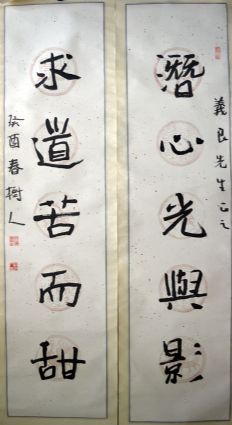 義良先生正之
潛心光與影
求道苦而甜
癸酉春樹人